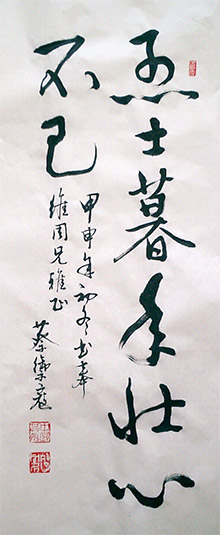 烈士暮年壮心
不已
甲申年初冬书奉
维周兄雅正
蔡